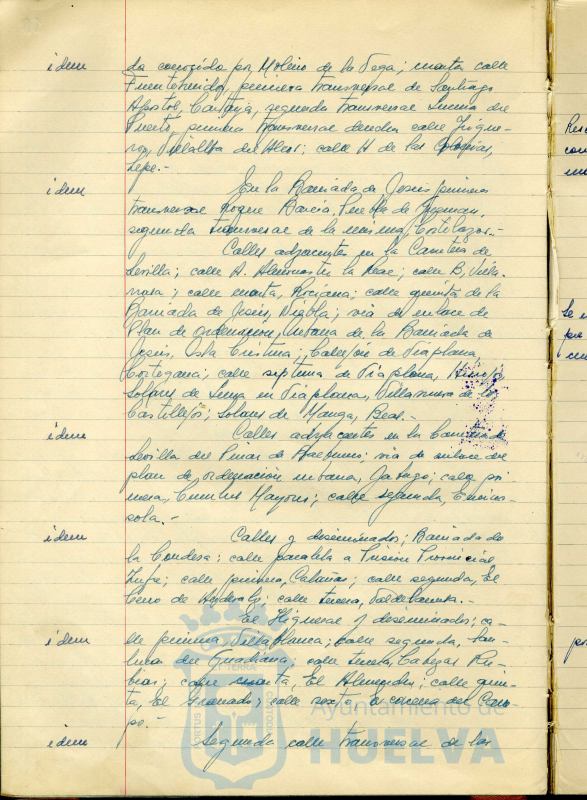 idem da conocida por Molino de la Vega; cuarta calle
Fuenteheridos, primera transversal de Santiago
Apostol, Cartaya, segunda transversal Lucena del
Puerto, primera transversal derecha calle
Villalba del Alcor; calle H de las Colonias,
Lepe.-
idem En la Barriada de Jesus, primera
transversal Roque Barcia, Puebla de Guzman,
segunda transversal de la misma,
Calles adyacentes en la Carretera de
Sevilla; calle A. Almonaster la Real; calle B, Villa-
rrasa; calle cuarta, Rociana; calle quinta de la
Barriada de Jesus, Niebla; via de enlace de
Plan de ordenación urbana de la Barriada de
Jesus, Isla Cristina; Callejón de Viaplana
Cortegana; calle septima de Viaplana, Hinojos
solares de en Viaplana, Villanueva de los
Castillejos; solares de
idem Calles adyacentes en la Carretera de
Sevilla del via de enlace del
plan de ordenación urbana, Jabugo; calle pri-
mera, Cumbres Mayores; calle segunda, Encina-
sola.-
idem Calles y diseminados; Barriada de
la Condesa: calle paralela a Prision Provincial
Zufre; calle primera, Calañas; calle segunda, El
Cerro de Andévalo; calle tercera,
idem El Higueral y diseminados; ca-
lle primera Villablanca; calle segunda, San-
lucar del Guadiana; calle tercera, Cabezas Ru-
bias; calle cuarta, El Almendro; calle quin-
ta, El Granado; calle sexta,
idem Segunda calle transversal de las
Ayuntamiento de
HUELVA